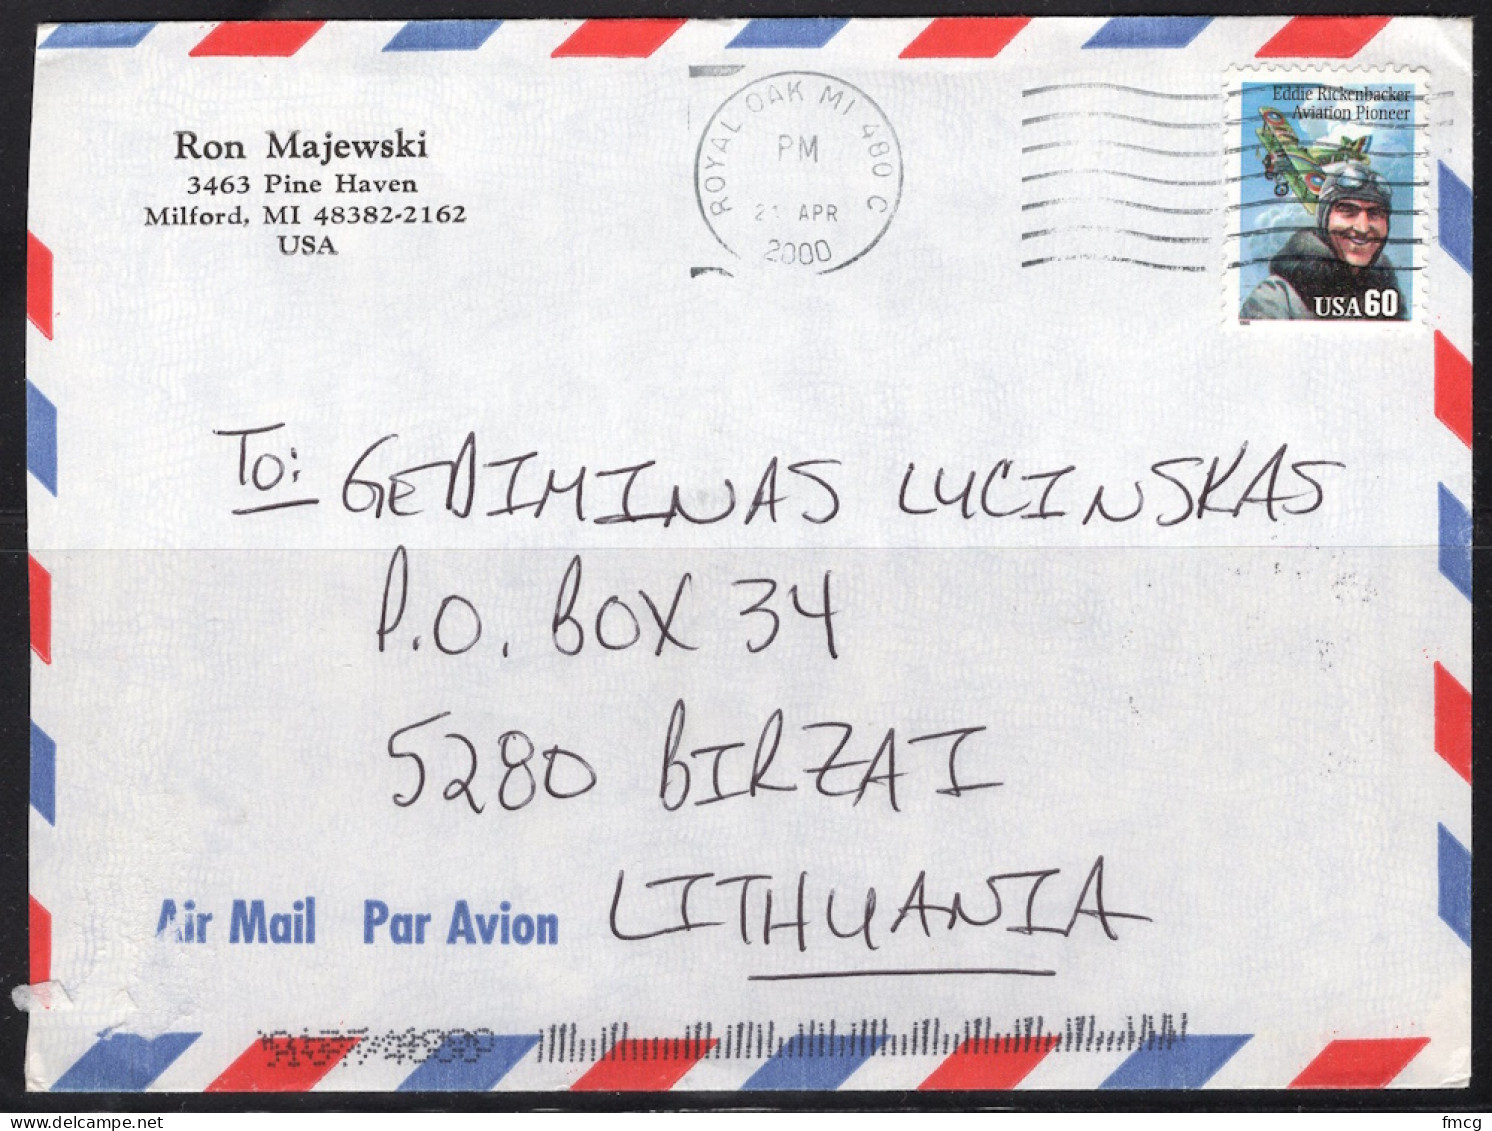 Ron Majewski
3463 Pine Haven
Milford, MI 48382-2162
USA
ROYAL OAK MI 480 C
PM
21 APR
2000
Eddie Rickenbacker
Aviation Pioneer
USA 60
To: GEDIMINAS LUCINSKAS
P.O. BOX 34
5280 BIRZAI
LITHUANIA
Air Mail Par Avion
fmcg
delcampe.net